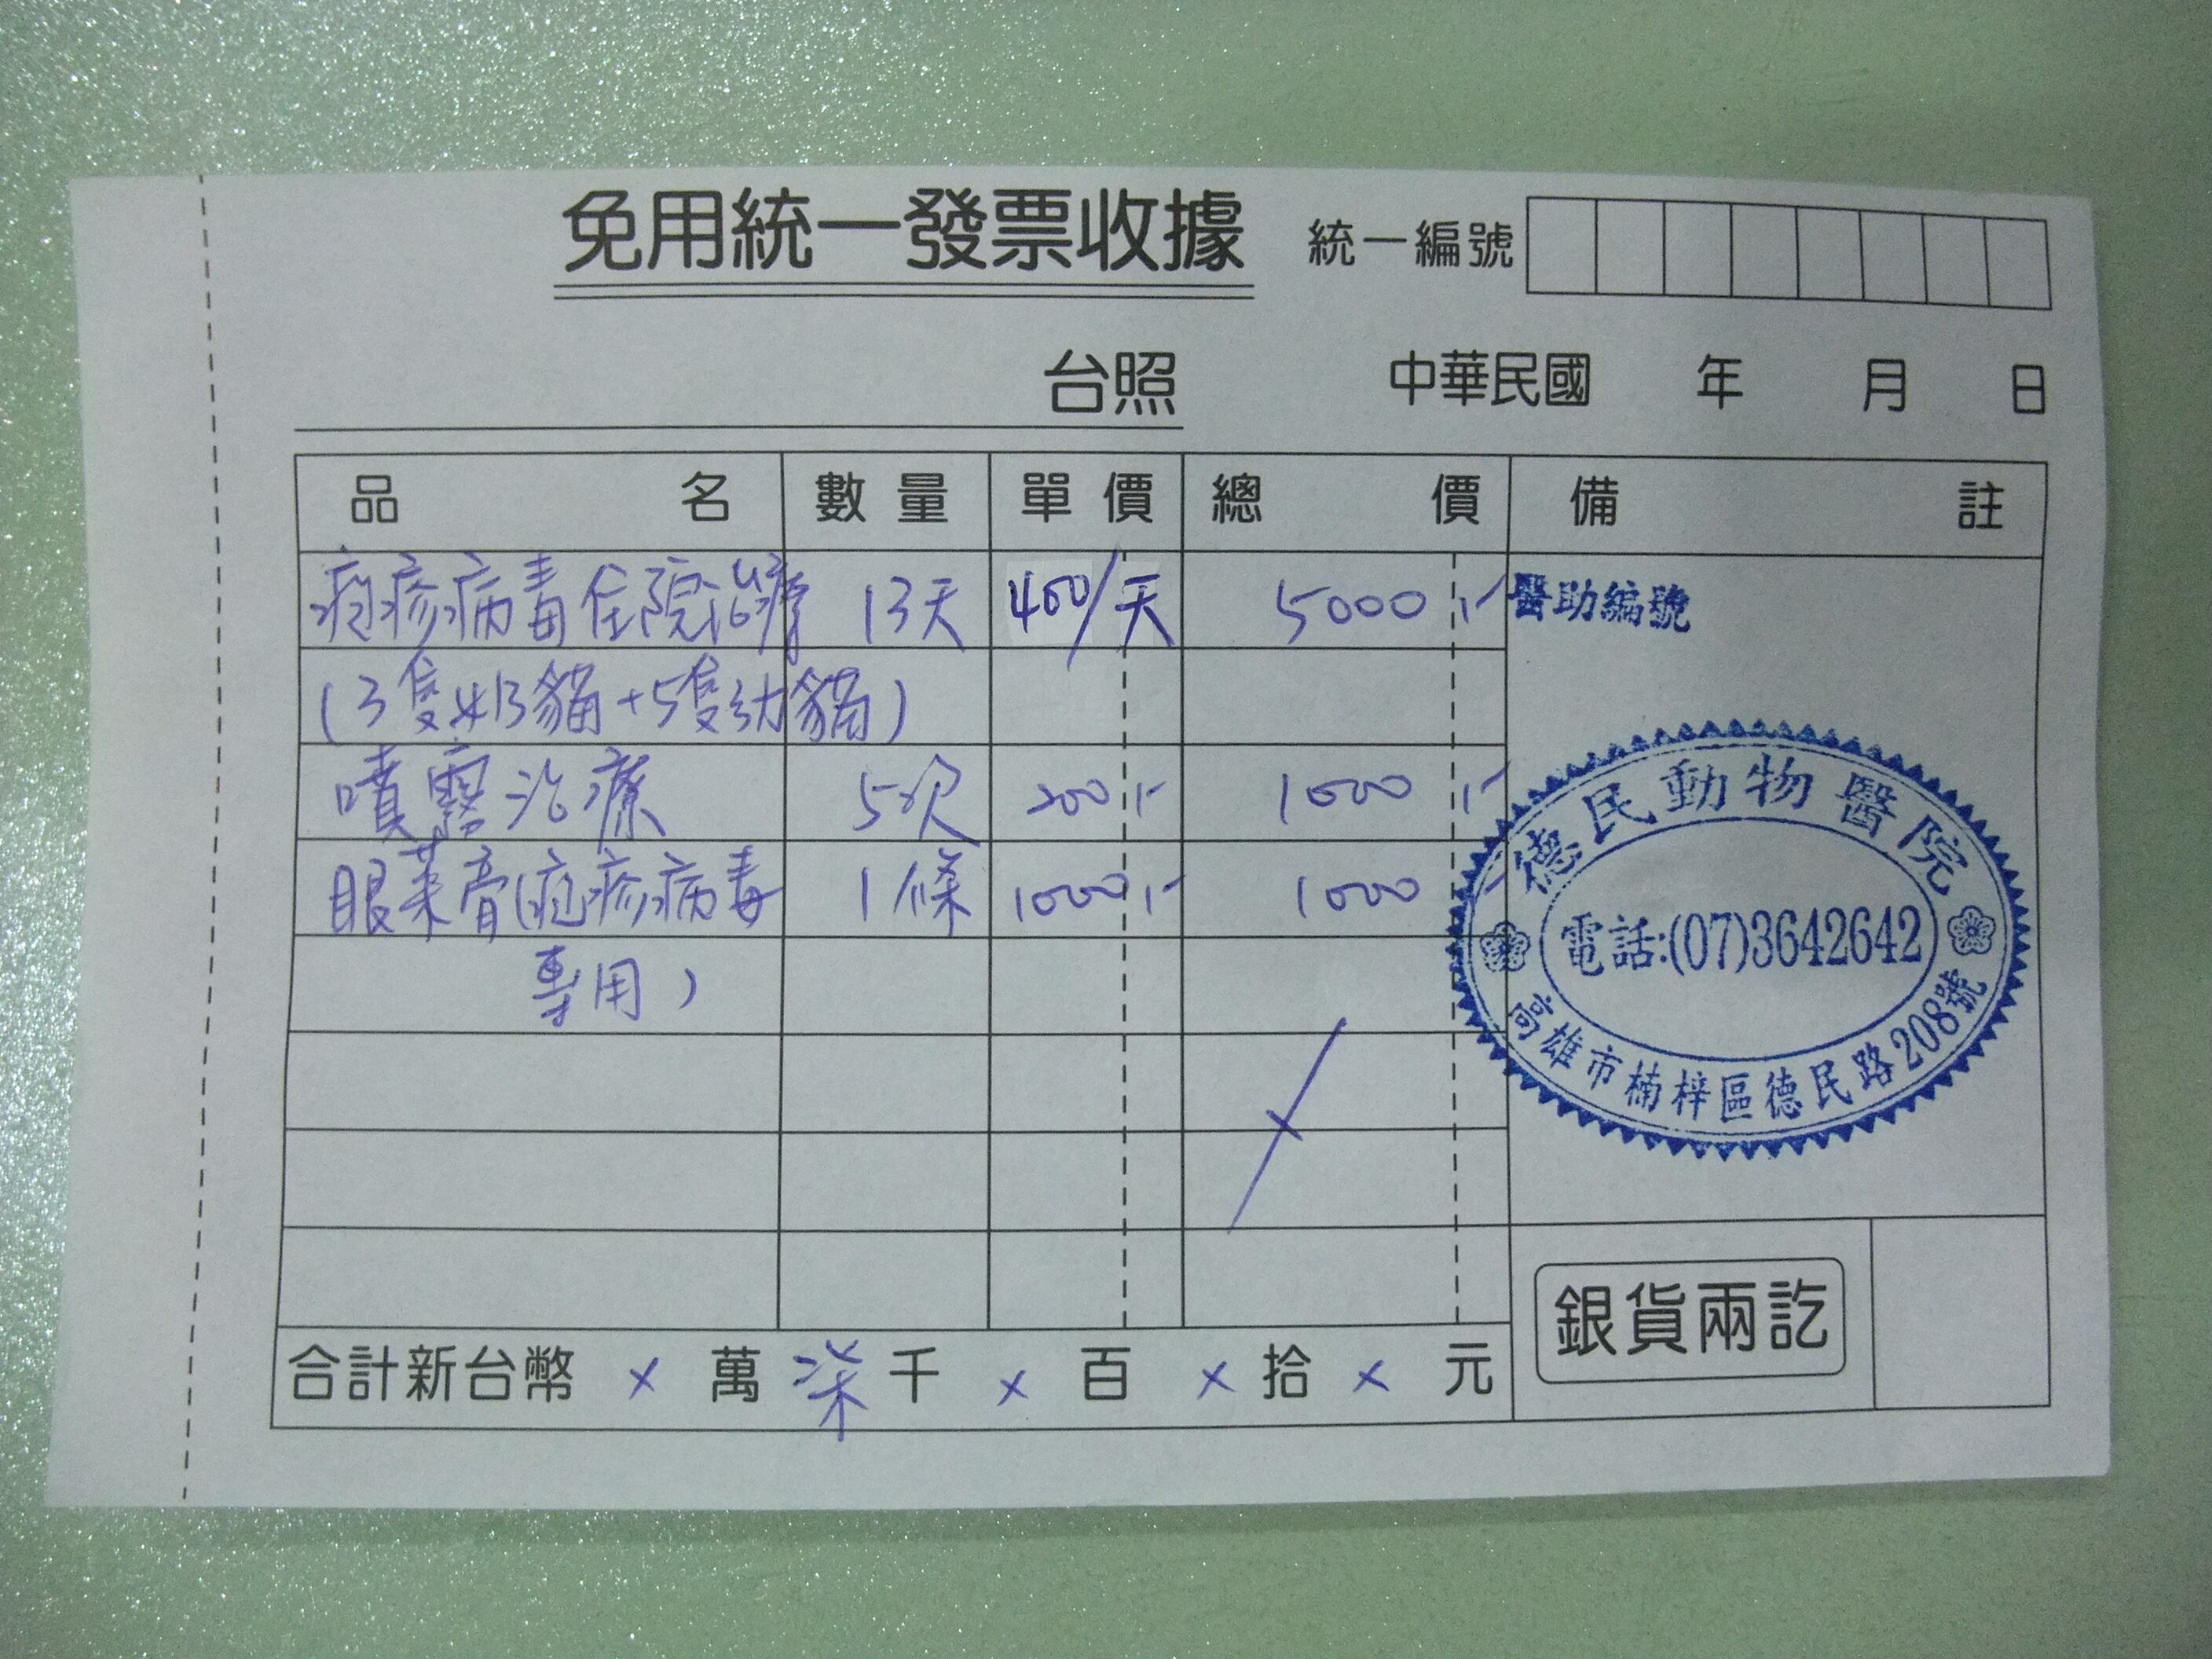 免用統一發票收據
統一編號
台照
中華民國 年 月 日
品名 數量 單價 總價 備註
疱疹病毒住院治療 13天 400/天 5000 醫助編號
(3隻奶貓+5隻幼貓)
噴霧治療 5次 200 1000
眼藥膏(疱疹病毒 1條 1000 1000
專用)
德民動物醫院
電話:(07)3642642
高雄市楠梓區德民路208號
合計新台幣 × 萬 柒 千 × 百 × 拾 × 元
銀貨兩訖